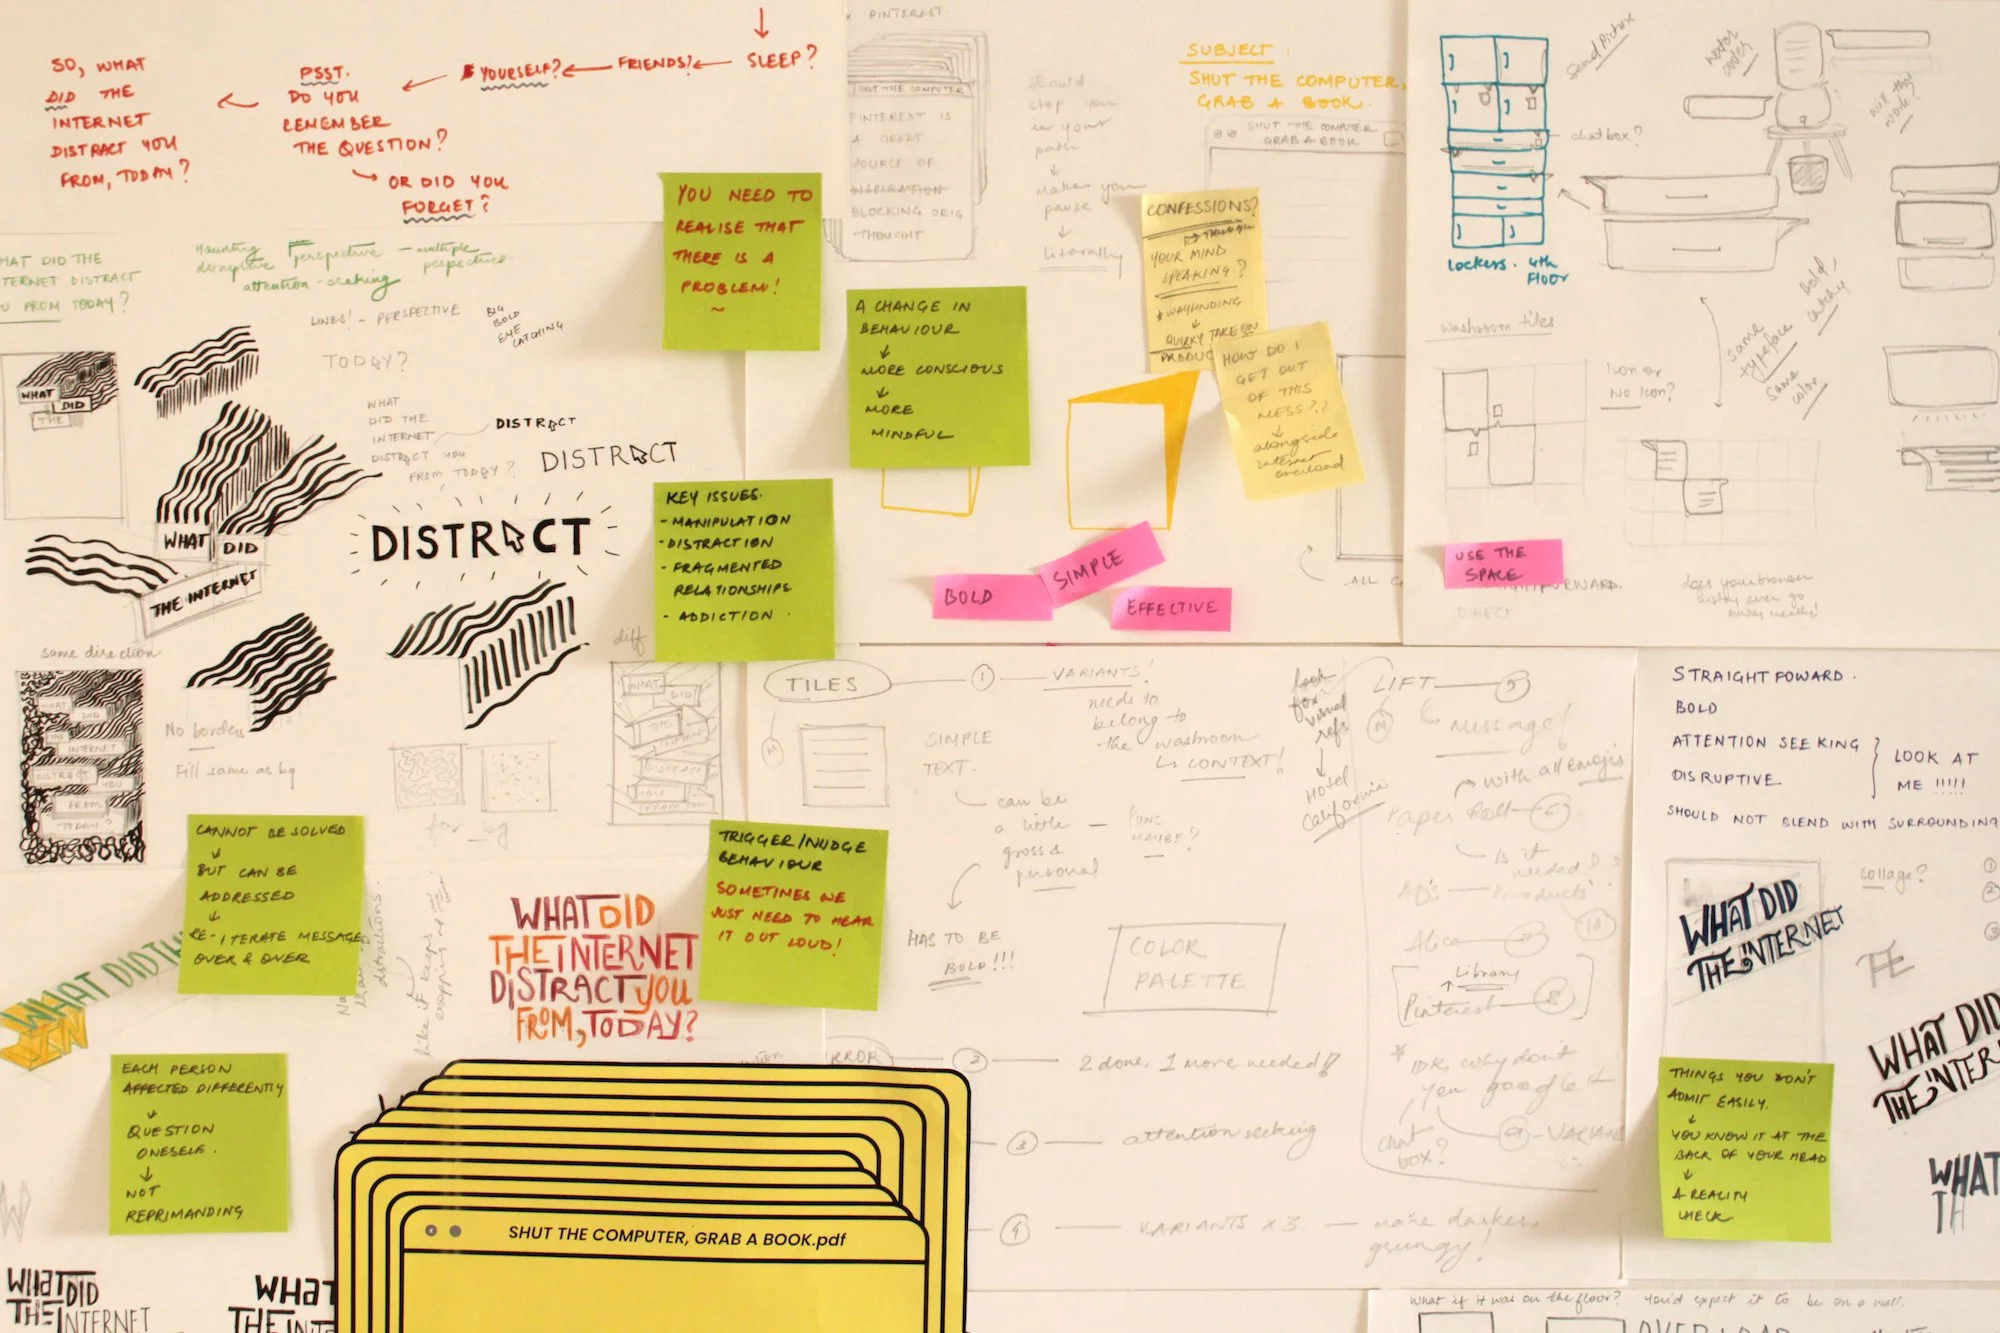 SO, WHAT
DID THE
INTERNET
DISTRACT YOU
FROM, TODAY?
PSST.
DO YOU
REMEMBER
THE QUESTION?
OR DID YOU
FORGET?
YOURSELF?
FRIENDS?
SLEEP?
PINTEREST.
SHUT THE COMPUTER
PINTEREST IS
A GREAT
SOURCE OF
INSPIRATION
BLOCKING ORIG
THOUGHT
should
stop you
in your
path
make you
pause
literally
SUBJECT:
SHUT THE COMPUTER,
GRAB A BOOK.
SHUT THE COMPUTER
GRAB A BOOK
Send Picture
water
chatbox?
Lockers. 4th
FLOOR
Bold,
catchy
same
typeface
same
color
washroom tiles
Icon or
No Icon?
USE THE
SPACE
DIRECT
HAT DID THE
TERNET DISTRACT
U FROM TODAY?
Haunting perspective - multiple
disruptive perspectives.
attention-seeking
LINES! - PERSPECTIVE
BIG
BOLD
EYE
CATCHING
TODAY?
WHAT
DID THE
INTERNET
DISTRACT YOU
FROM TODAY?
DISTRACT
DISTRACT
DISTRACT
WHAT
DID
THE
WHAT DID
THE INTERNET
YOU NEED TO
REALISE THAT
THERE IS A
PROBLEM!
A CHANGE IN
BEHAVIOUR
MORE CONSCIOUS
MORE
MINDFUL
CONFESSIONS?
YOUR MIND
SPEAKING?
WAYFINDING
QUIRKY TAKE ON
PRODUC
HOW DO I
GET OUT
OF THIS
MESS??
alongside
internet
overload
KEY ISSUES.
- MANIPULATION
- DISTRACTION
- FRAGMENTED
RELATIONSHIPS.
- ADDICTION.
BOLD
SIMPLE
EFFECTIVE
same direction
WHAT
DID
THE
INTERNET
DISTRACT
YOU
FROM
TODAY?
No borders
Fill same as bg
for bg
diff
WHAT
DID
TILES
1
VARIANTS!
needs to
belong to
the washroom
CONTEXT!
SIMPLE
TEXT.
can be
a little
gross &
personal
PUNS
MAYBE?
HAS TO BE
BOLD!!!
COLOR
PALETTE
look
for
visual
refs
Hotel
California
LIFT
5
message!
with all emojis
Paper Roll
6
Is it
needed?
AD'S
Products
10
Alice
7
Library
Pinterest
8
IDK, why don't
you google it
chat
box?
VARIANTS
STRAIGHT FOWARD.
BOLD
ATTENTION SEEKING
DISRUPTIVE
LOOK AT
ME !!!!!
SHOULD NOT BLEND WITH SURROUNDING
collage?
WHAT DID
THE INTERNET
THE
WHAT DID
THE INTER
WHAT
TH
CANNOT BE SOLVED
BUT CAN BE
ADDRESSED
RE-ITERATE MESSAGE
OVER & OVER
WHAT DID TH
IN
distractions.
like it keeps
WHAT DID
THE INTERNET
DISTRACT YOU
FROM, TODAY?
TRIGGER/NUDGE
BEHAVIOUR
SOMETIMES WE
JUST NEED TO HEAR
IT OUT LOUD!
EACH PERSON
AFFECTED DIFFERENTLY
QUESTION
ONESELF.
NOT
REPRIMANDING
RROR
2
2 done, 1 more needed!
3
attention seeking
4
VARIANTS X 3.
more darker,
grungy!
THINGS YOU DON'T
ADMIT EASILY.
YOU KNOW IT AT THE
BACK OF YOUR HEAD
A REALITY
CHECK
SHUT THE COMPUTER, GRAB A BOOK.pdf
WHAT DID
THE INTERNET
WHAT
THE INT
What if it was on the floor? You'd expect it to be on a wall.
OVERLOAD